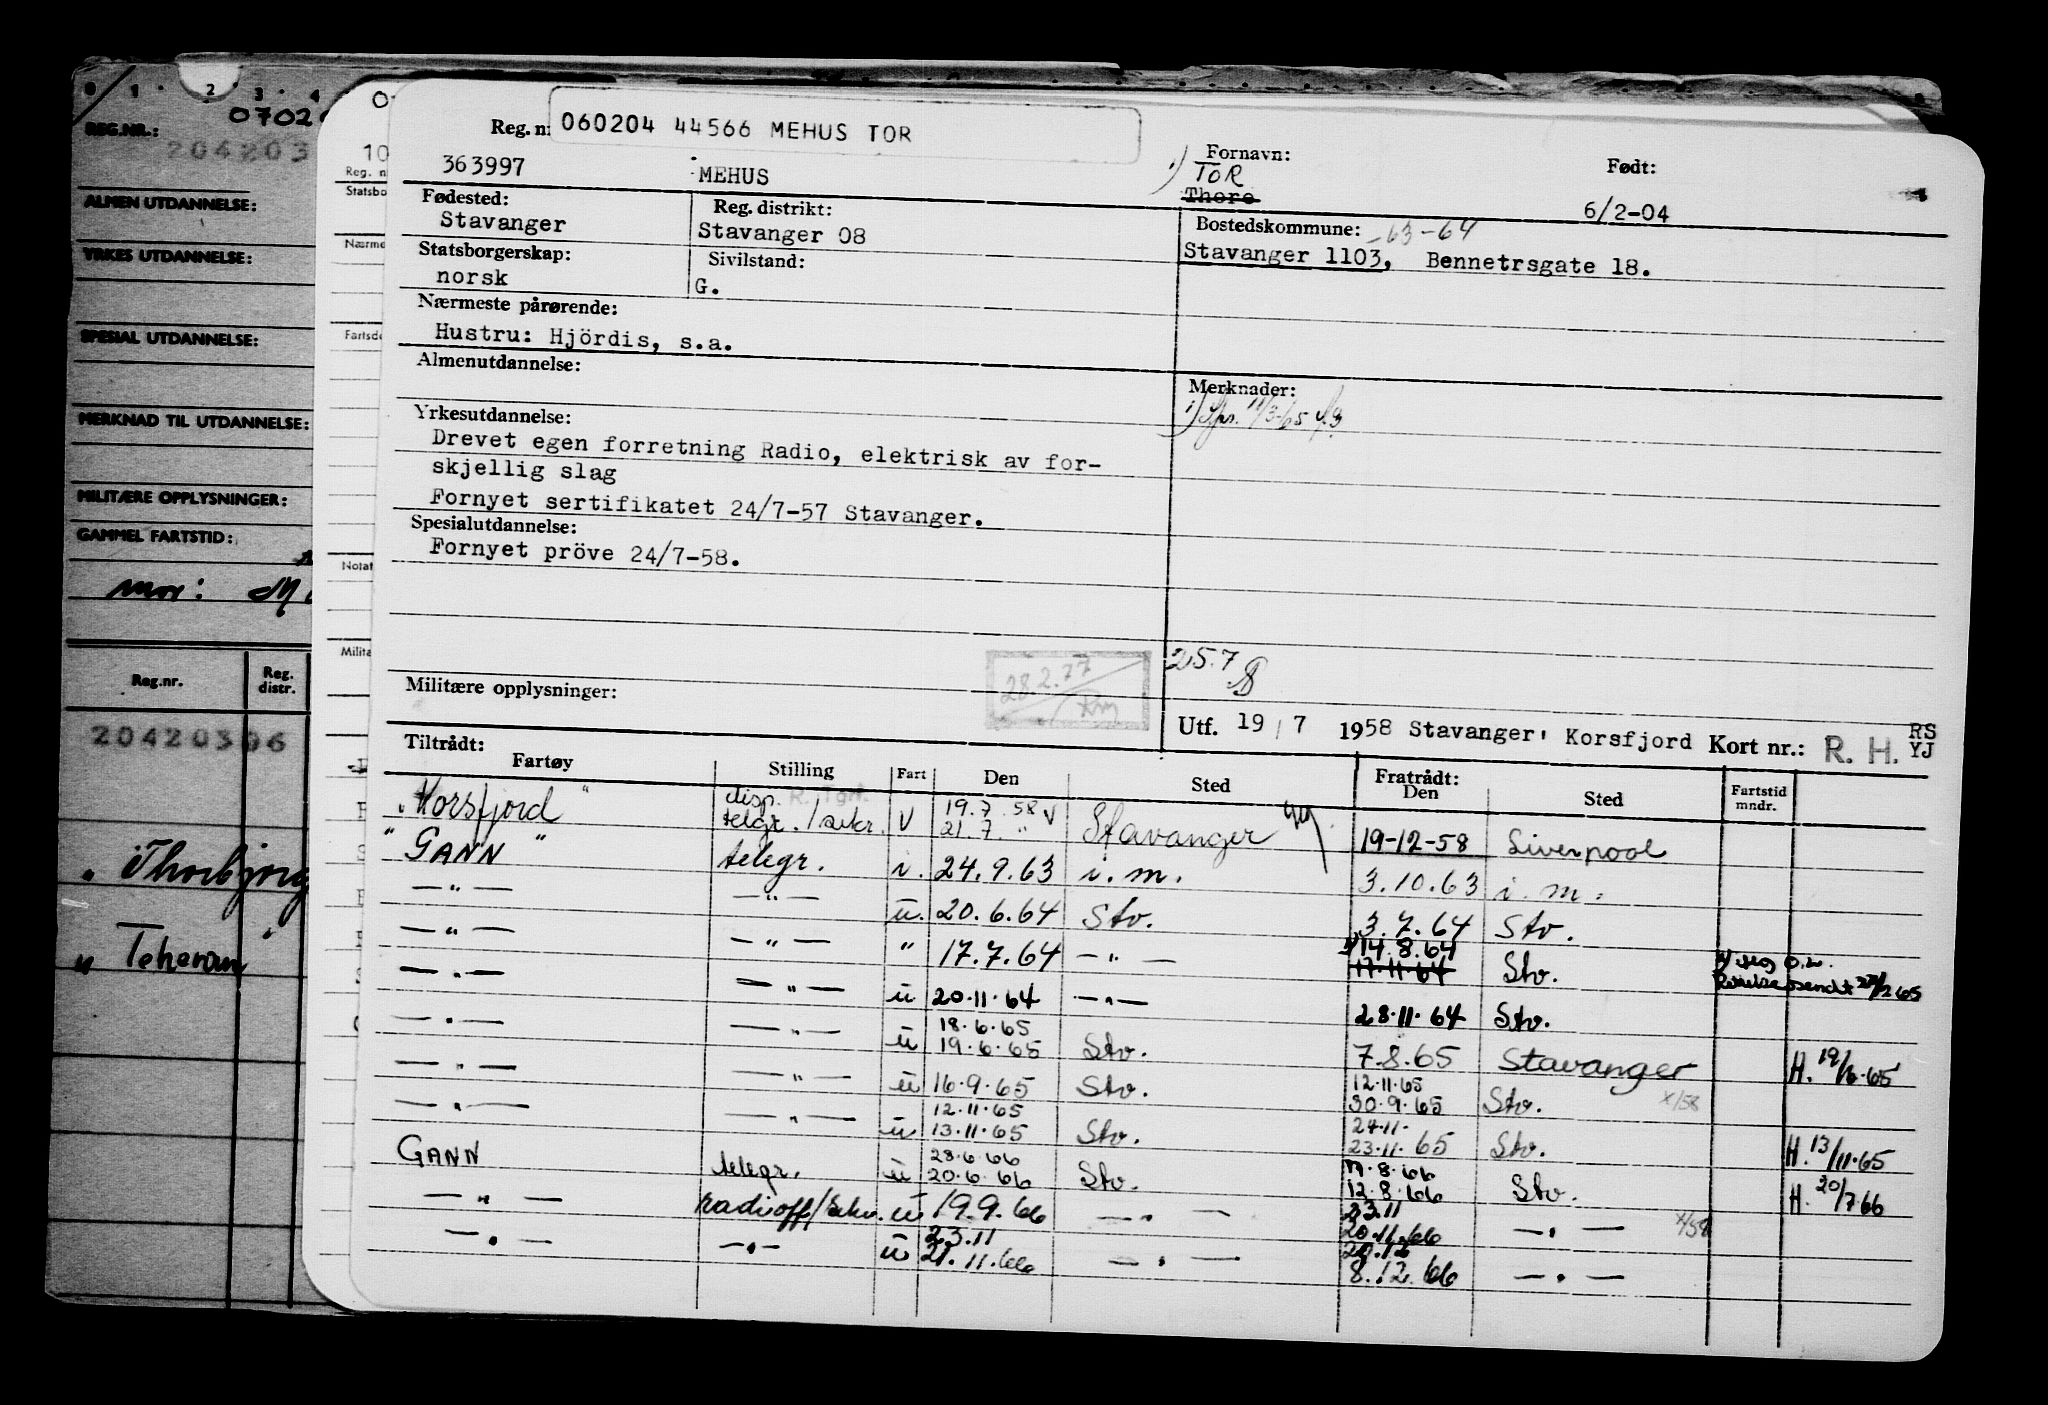 0 1 2 3 4
0702
REG.NR.:
204203
ALMEN UTDANNELSE:
YRKES UTDANNELSE:
SPESIAL UTDANNELSE:
MERKNAD TIL UTDANNELSE:
MILITÆRE OPPLYSNINGER:
GAMMEL FARTSTID:
mor: M
Reg.nr. Reg. distr.
20420306
" Thorbjørg
" Teheran "
10
Reg. n
Statsbo
Nærme
Fartsde
Notat
Milita
Reg. n 060204 44566 MEHUS TOR
Fornavn: Født:
363997 MEHUS 1) TOR
Thore 6/2-04
Fødested: Reg. distrikt: Bostedskommune: -63-64
Stavanger Stavanger 08 Stavanger 1103, Bennetrsgate 18.
Statsborgerskap: Sivilstand:
norsk G.
Nærmeste pårørende:
Hustru: Hjördis, s.a.
Almenutdannelse: Merknader:
1) 11/3-65
Yrkesutdannelse:
Drevet egen forretning Radio, elektrisk av for-
skjellig slag
Fornyet sertifikatet 24/7-57 Stavanger.
Spesialutdannelse:
Fornyet pröve 24/7-58.
25.7
28.2.77
Militære opplysninger:
Utf. 19 / 7 1958 Stavanger, Korsfjord Kort nr.: R. H. RS YJ
Tiltrådt: Fratrådt:
Fartøy Stilling Fart Den Sted Den Sted Fartstid mndr.
"Korsfjord" disp. R.Tgr. telgr./sekr. V 19.7.58 V 21.7. " Stavanger 19-12-58 Liverpool
"GANN" telegr. i. 24.9.63 i.m. 3.10.63 i.m.
— " — — " — u. 20.6.64 Stv. 3.7.64 Stv.
— " — — " — " 17.7.64 — " — 14.8.64 17.11.64 Stv. sendt 65
— " — — " — u 20.11.64 — " — 28.11.64 Stv.
— " — — " — u 18.6.65 19.6.65 Stv. 7.8.65 Stavanger H. 19/6.65
— " — — " — u 16.9.65 Stv. 12.11.65 30.9.65 Stv. x/58
— " — — " — u 12.11.65 13.11.65 Stv. 24.11. 23.11.65 Stv. H. 13/11.65
GANN telegr. u 28.6.66 20.6.66 Stv. 12.8.66 Stv. H. 20/7 66
— " — radiooff/sekr. u 19.9.66 — " — 23.11 20.11.66 — " — x/58
— " — — " — u 23.11 21.11.66 — " — 20.12 8.12.66 — " —